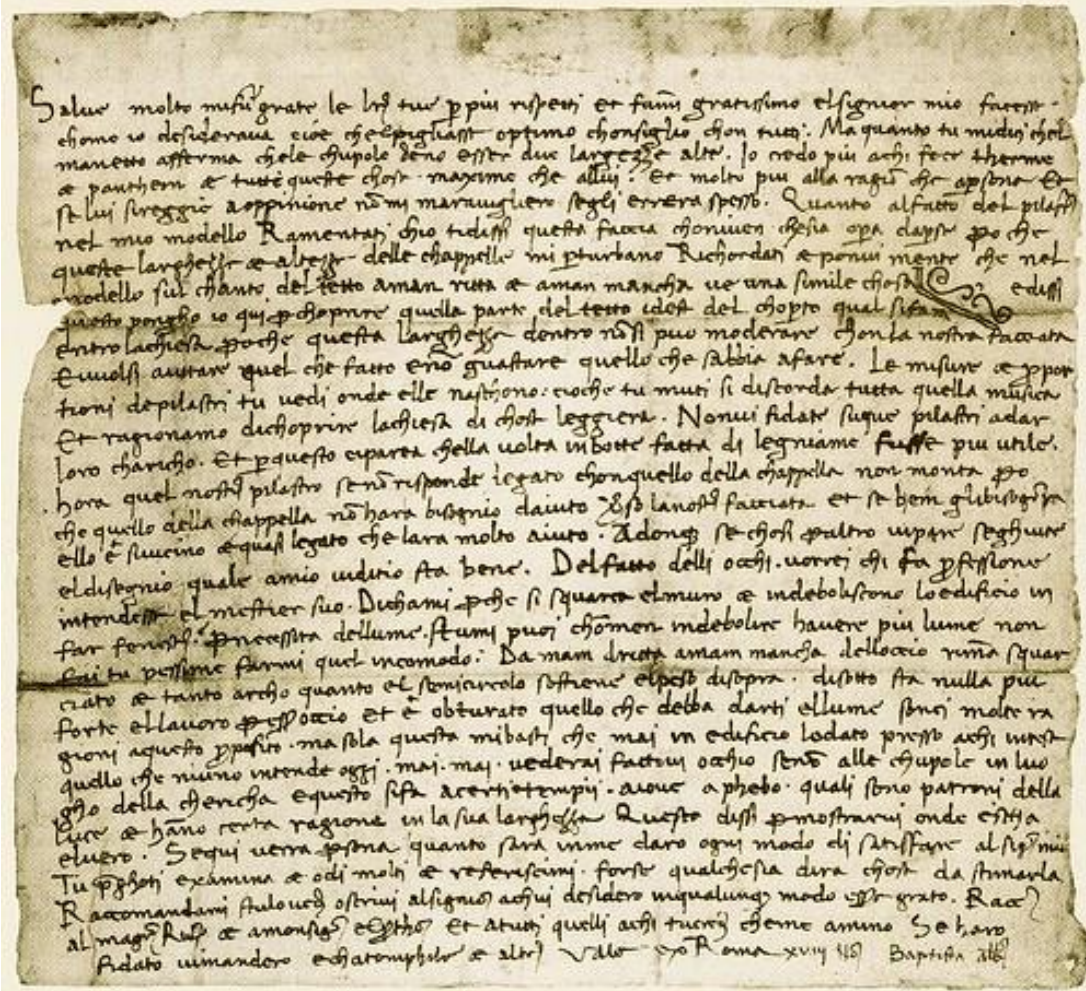 Salue molto mi fu grate le lrē tue p più rispetti et fumi gratissimo el signior mio facesse
chomo io desiderava cioè chelpigliasse optimo chonsiglio chon tutti. Ma quanto tu midici chel
manetto afferma chele chupole deno esser due largezze alte. Io credo più achi fece therme
æ pantheon æ tutte queste chose maxime che allui. Et molto più alla ragiō che apsona Et
se lui sireggie a oppinione nō mi maraviglierò segli errera spesso. Quanto alfatto del pilast°
nel mio modello Ramentati chio tidissi questa faccia chonvien chesia opa dapse poche
queste larghezze æ altezze delle chappelle mi pturbano Richordati æ ponvi mente che nel
modello sul chanto del tetto aman ritta æ aman mancha ve una simile chosa edissi
questo pongho io qui p choprire quella parte del tetto idest del chopto qual sifara
entro lachiesa poche questa larghezze dentro nōsi può moderare chon la nostra facciata
Euuolsi aiutare quel che fatto enō guastare quello che sabbia afare. Le misure æ ppor
tioni depilastri tu vedi onde elle naschono: cioche tu muti si discorda tutta quella musica
Et ragionamo dichoprire lachiesa di chosa leggiera. Nonvi fidate sugue pilastri adar
loro charicho. Et pquesto ciparea chella volta inbotte fatta di legniame fusse più utile.
hora quel nost° pilastro senō risponde legato chonquello della chappella non monta po
che quello della chappella nō hara bisognio daiuto vso lanost° facciata et se bem glibisognera
ello è siuicino æ quasi legato che lara molto aiuto. Adonq se chosi p altro vi pare seghuite
el disegnio quale amio iuditio sta bene. Del fatto delli occhi. vorrei chi fa pfessione
intendesse el mestier suo. Dichami pche si squarca el muro æ indeboliscono lo edificio in
far fenestre. P necessita dellume. Setumi puoi chōmen indebolire havere più lume non
fai tu pessime farmi quel incomodo. Da mam dritta amam mancha delloccio riman squar
ciato æ tanto archo quanto el semicircolo sostiene elpeso disopra. disotto sta nulla più
forte el lavoro p ess° occio et è obturato quello che debba darti el lume. sonci molte ra
gioni aquesto pposito. ma sola questa mibasti che mai in edificio lodato presso achi intese
quello che niuno intende oggi. mai. mai. vederai factovi occhio senō alle chupole in luo
gho della chericha Equesto sifa acerti tempii. aiove a phebo. quali sono patroni della
luce æ hāno certa ragione in la sua larghezza Questo dissi p mostrarvi onde escha
el vero. Sequi verra psona quanto sara inme daro ogni modo di satisfare al sigr mio
Tu pghoti examina æ odi molti æ referiscimi. forse qualchesia dira chosa da stimarla
Raccomandami setulovedi oscrivi alsignior achui desidero inqualunq modo esse grato. Racc
al magco Rubto æ amonsigr el pthro Et atutti quelli achi tucredi cheme amino Se haro
fidato vimandero echatomphile æ altro Vale ex Roma xviii 9bris Baptista albti